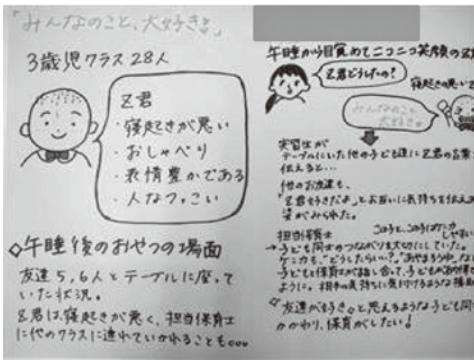 「みんなのこと、大好き」
3歳児クラス28人
Z君
・寝起きが悪い
・おしゃべり
・表情豊かである
・人なつっこい
◇午睡後のおやつの場面
友達5,6人とテーブルに座って
いた状況。
Z君は寝起きが悪く、担当保育士
に他のクラスに連れていかれることも。。。
午睡から目覚めてニコニコ笑顔のZ
Z君どうしたの?
寝起きの悪いZ
みんなのこと
大好き
実習生が
テーブルにいた他の子ども達にZ君の言葉
伝えると…
他のお友達も、
「Z君好きだよ」とお互いに気持ちを伝え
姿がみられた。
担当保育士
→子ども同士のつながりを大切にしていた。
ケンカも、"どうしたらいい?"
子どもと保育士が話し合って、
ように。相手の気持ちに気付けるような援助
"友達が好き"と思えるような子ども同
かかわり、保育がしたい!